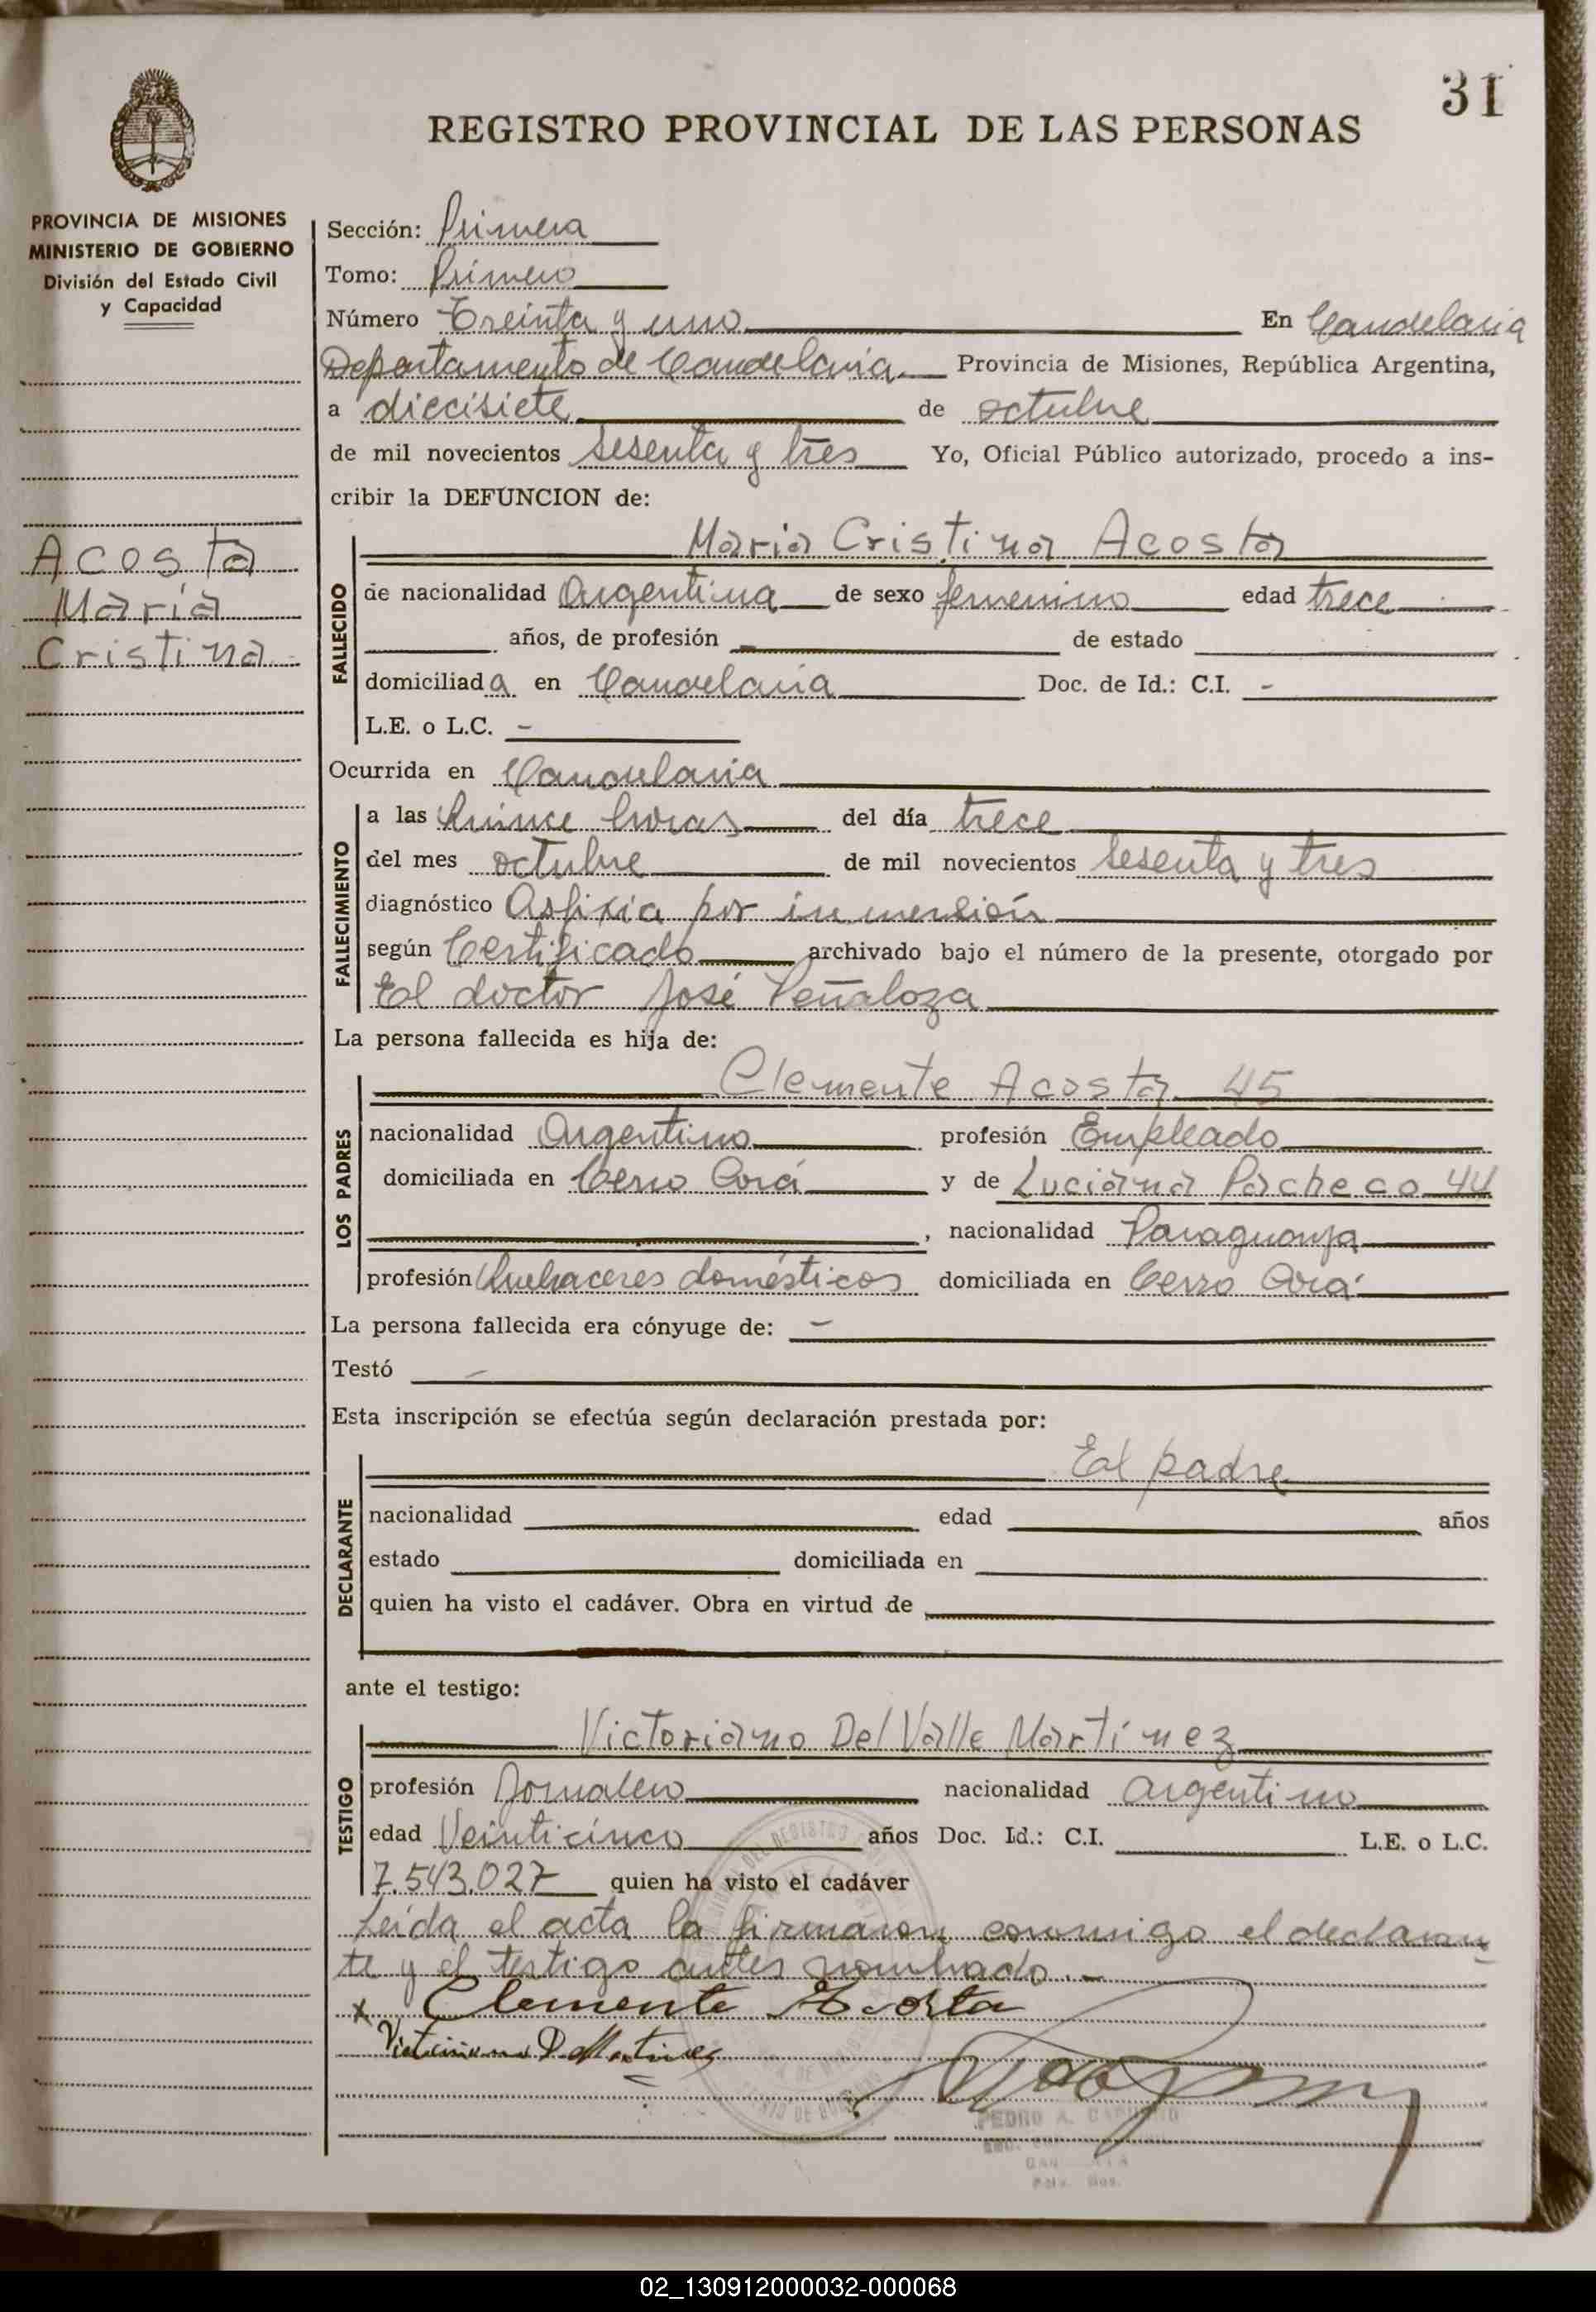 31
REGISTRO PROVINCIAL DE LAS PERSONAS
PROVINCIA DE MISIONES
MINISTERIO DE GOBIERNO
División del Estado Civil
y Capacidad
Acosta
María
Cristina
Sección: Primera
Tomo: Primero
Número Treinta y uno En Candelaria
Departamento de Candelaria Provincia de Misiones, República Argentina,
a diecisiete de octubre
de mil novecientos sesenta y tres Yo, Oficial Público autorizado, procedo a ins-
cribir la DEFUNCION de:
FALLECIDO
Maria Cristina Acosta
de nacionalidad Argentina de sexo femenino edad trece
años, de profesión de estado
domiciliada en Candelaria Doc. de Id.: C.I. -
L.E. o L.C. -
Ocurrida en Candelaria
FALLECIMIENTO
a las Quince horas del día trece
del mes octubre de mil novecientos sesenta y tres
diagnóstico Asfixia por inmersión
según Certificado archivado bajo el número de la presente, otorgado por
El doctor José Peñaloza
La persona fallecida es hija de:
LOS PADRES
Clemente Acosta 45
nacionalidad Argentino profesión Empleado
domiciliada en Cerro Corá y de Luciana Pacheco 44
, nacionalidad Paraguaya
profesión Quehaceres domésticos domiciliada en Cerro Corá
La persona fallecida era cónyuge de: -
Testó -
Esta inscripción se efectúa según declaración prestada por:
DECLARANTE
El padre
nacionalidad edad años
estado domiciliada en
quien ha visto el cadáver. Obra en virtud de
ante el testigo:
TESTIGO
Victoriano Del Valle Martínez
profesión Jornalero nacionalidad argentino
edad Veinticinco años Doc. Id.: C.I. L.E. o L.C.
7.543.027 quien ha visto el cadáver
Leida el acta la firmaron conmigo el declaran
te y el testigo antes nombrado.-
x Clemente Acosta
Victoriano D Martinez
PEDRO A.
02_130912000032-000068